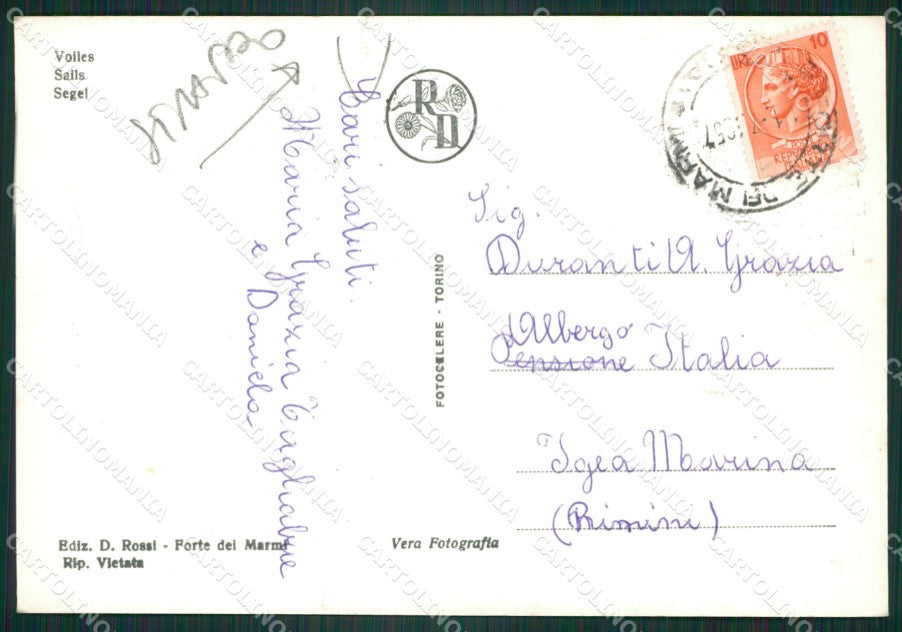 Voiles
Sails
Segel
Cari saluti.
Maria Grazia Tagliabue
e Daniela
R
D
FOTOCELERE - TORINO
10
LIRE
DEI MARMI
1957
Sig.
Duranti M. Grazia
Albergo
Pensione Italia
Igea Marina
(Rimini)
Ediz. D. Rossi - Forte dei Marmi
Rip. Vietata
Vera Fotografia
CARTOLINOMANIA